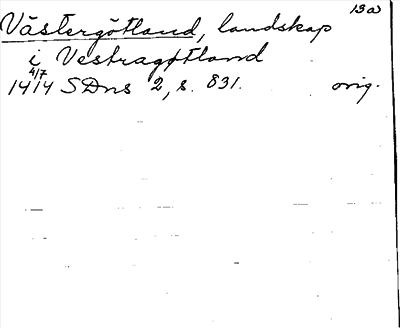 13a
Västergötland, landskap
i Vestragøtland
4/7
1414 SDns 2, s. 831. orig.